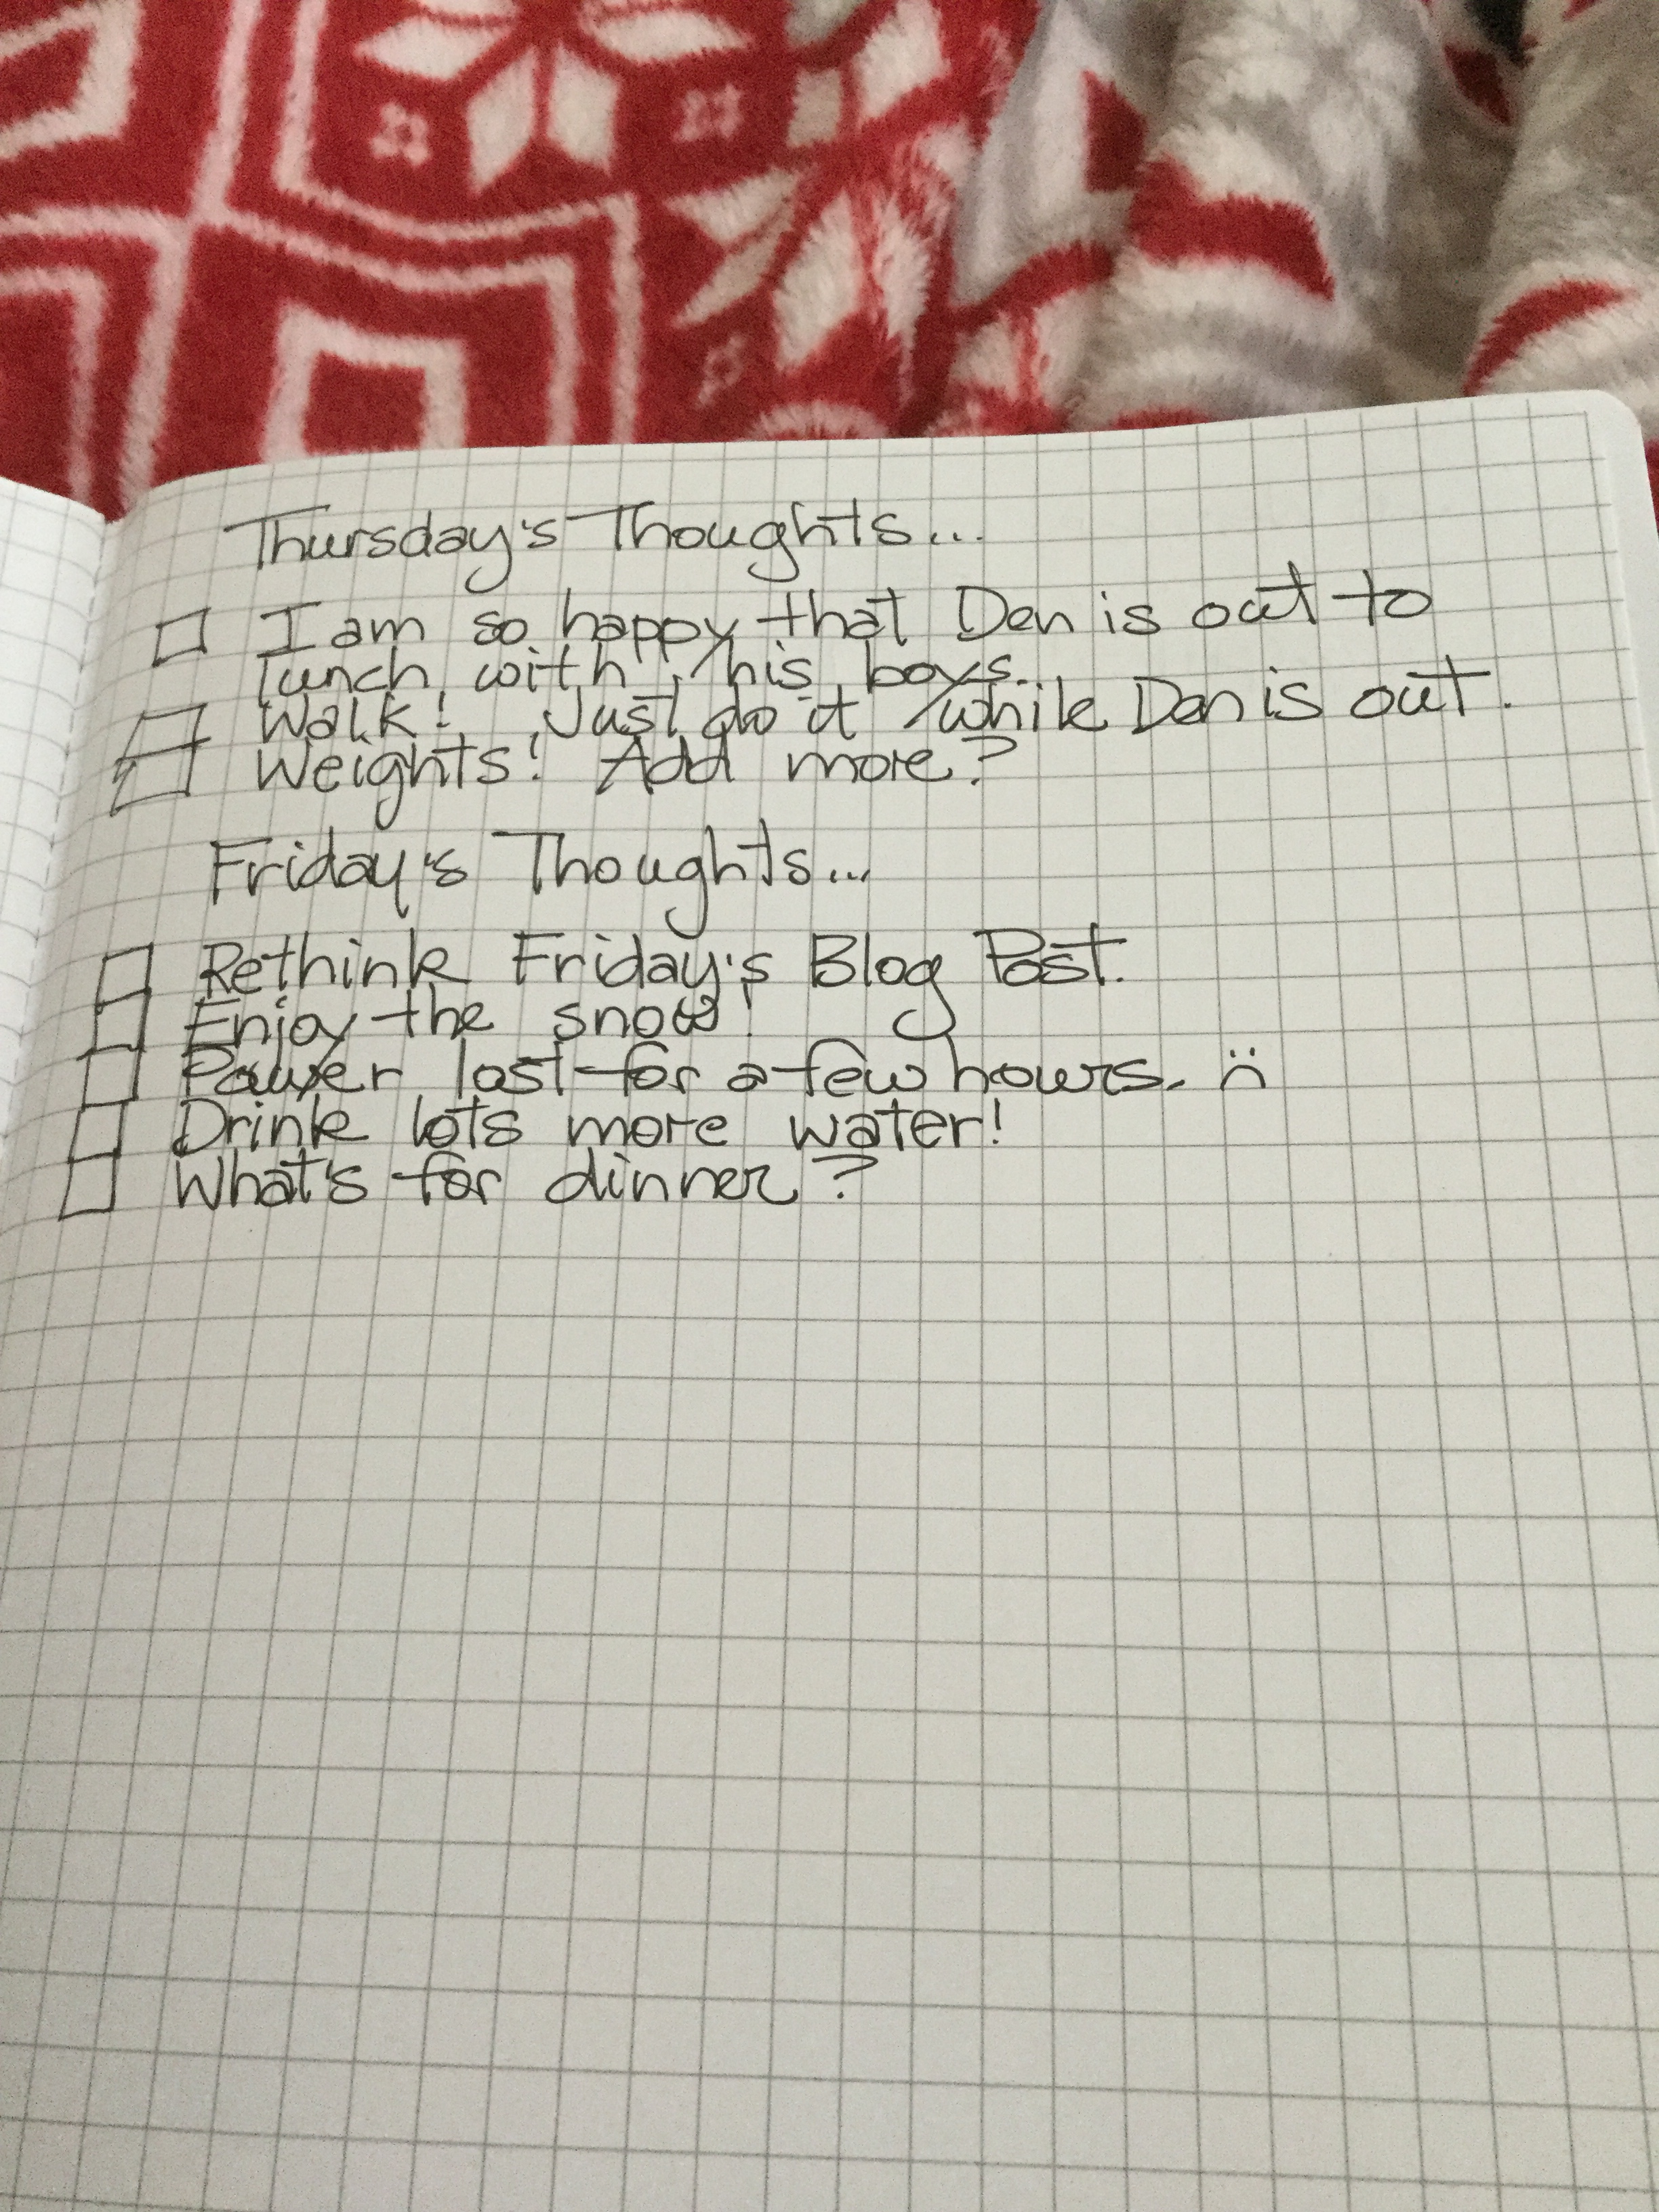 Thursday's Thoughts...
I am so happy that Den is out to
lunch with his boys.
Walk! Just do it while Den is out.
Weights! Add more?
Friday's Thoughts...
Rethink Friday's Blog Post.
Enjoy the snow!
Power lost for a few hours. :(
Drink lots more water!
What's for dinner?